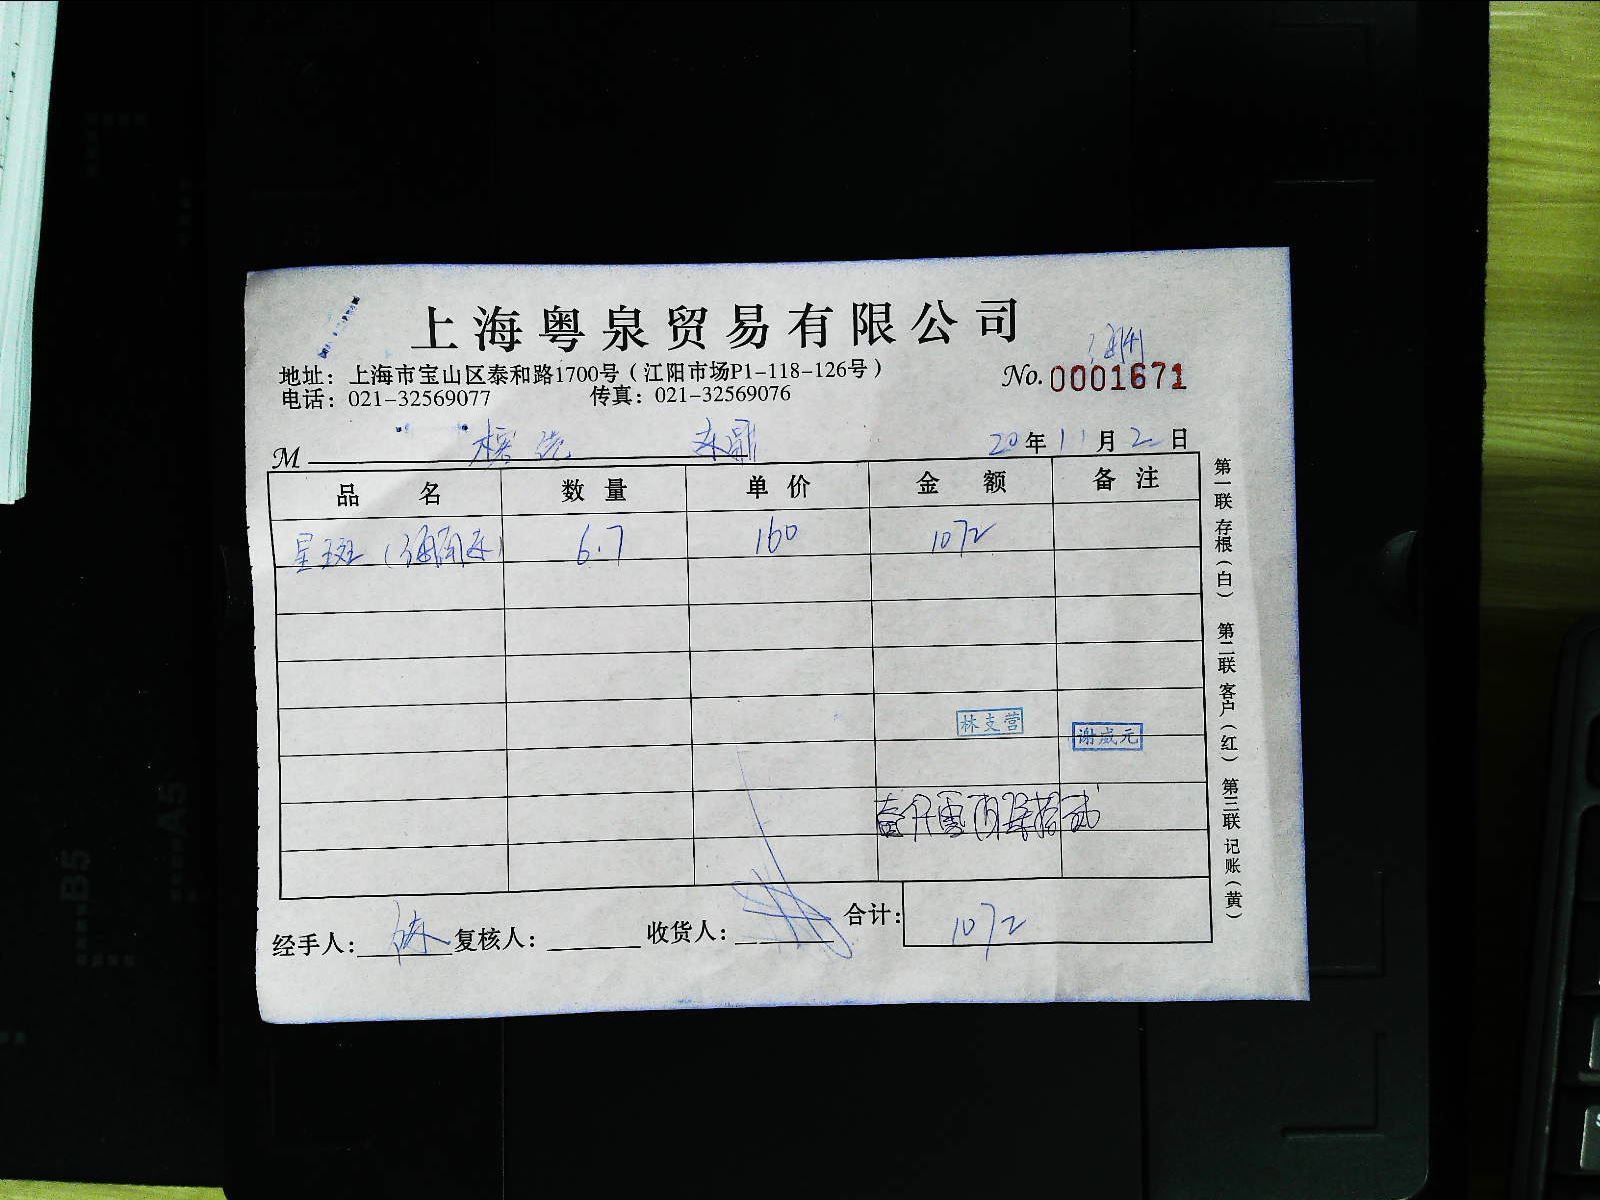 上海粤泉贸易有限公司
地址：上海市宝山区泰和路1700号（江阳市场P1-118-126号）
No. 0001671
电话：021-32569077 传真：021-32569076
M 20年11月2日
品名 数量 单价 金额 备注
星斑 6.7 160 1072
林支营
谢威元
壹仟零百柒拾贰
经手人： 复核人： 收货人： 合计： 1072
第一联 存根（白） 第二联 客户（红） 第三联 记账（黄）
B5
A5